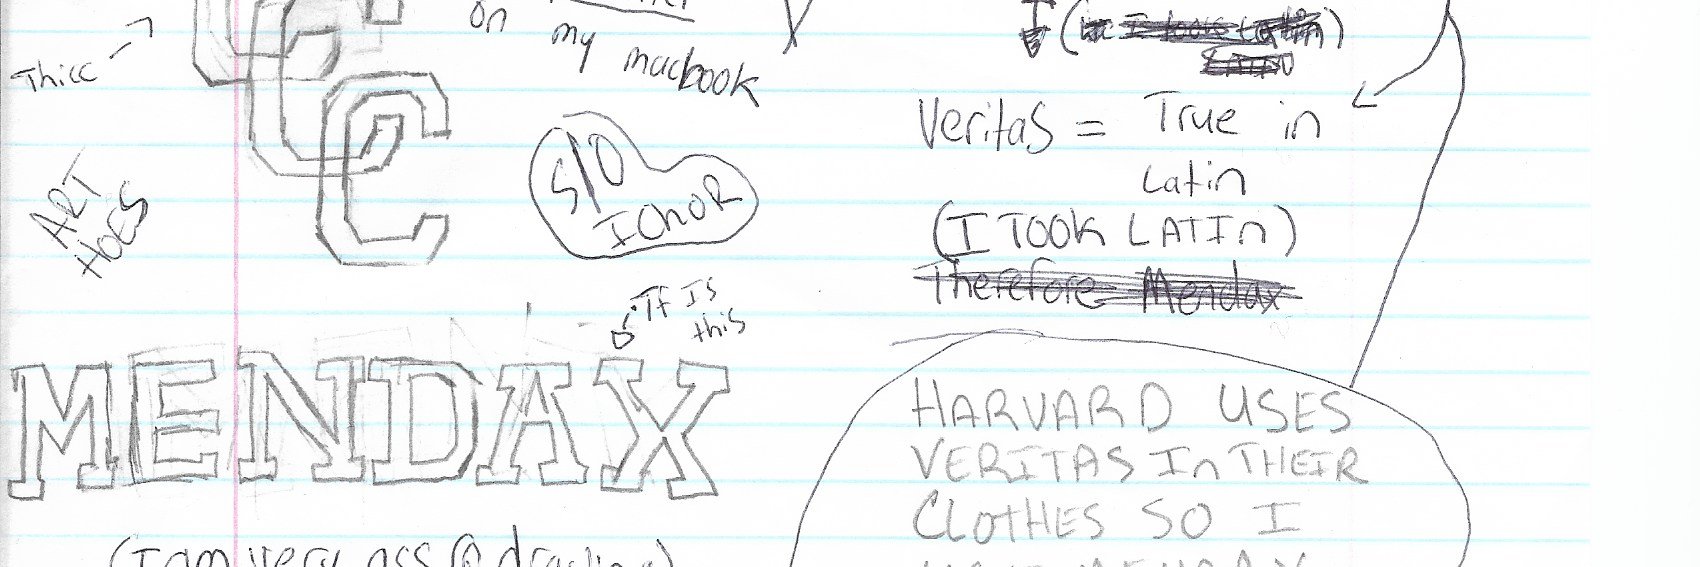 Thicc
on
my
macbook
ART
HOES
S/O
IChOR
If Is
this
MENDAX
(I am very ass @ drawing)
I (
Veritas = True in
Latin
(I TOOK LATIn)
Therefore Mendax
HARVARD USES
VERITAS In THEIR
CLOTHES SO I